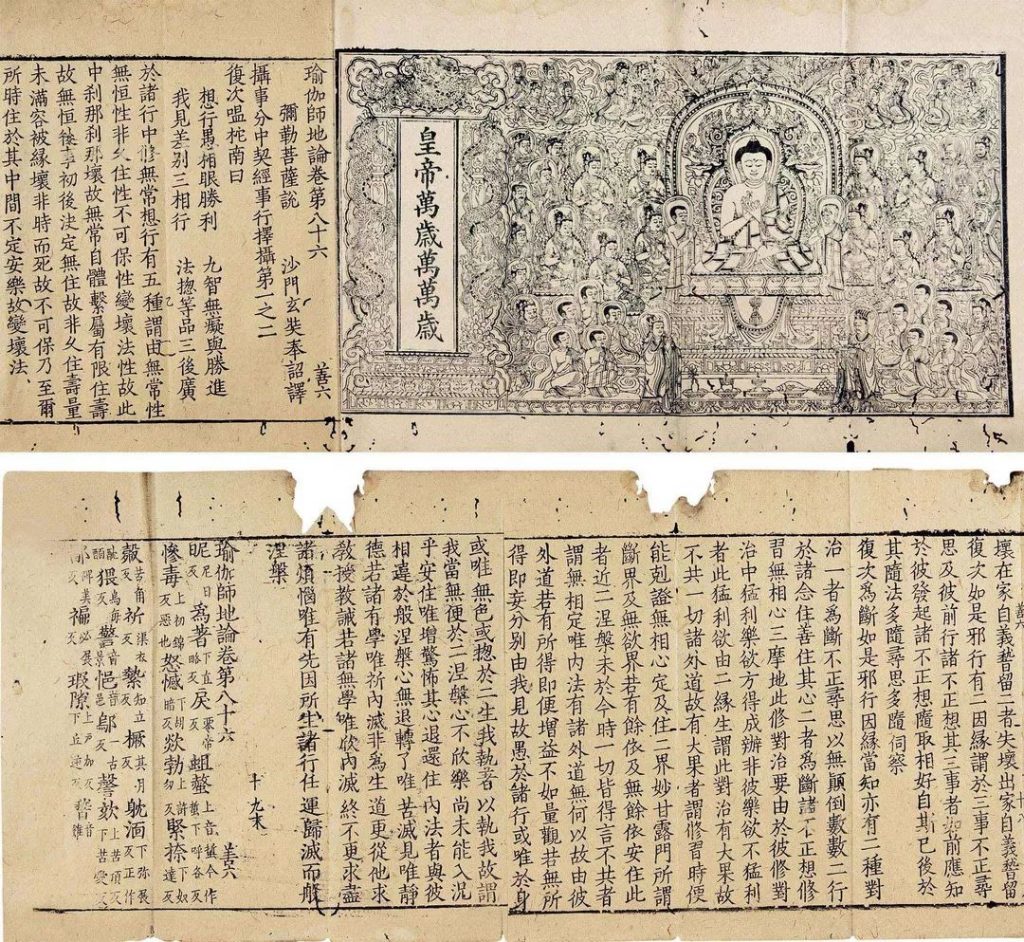 皇帝萬歲萬萬歲
瑜伽師地論卷第八十六 善六
彌勒菩薩說 沙門玄奘奉詔譯
攝事分中契經事行擇攝第一之二
復次嗢柁南曰
想行愚相眼勝利 九智無癡與勝進
我見差别三相行 法揔等品三後廣
於諸行中修無常想行有五種謂由無常性
無恒性非久住性不可保性變壞法性故此
中刹那刹那壞故無常自體繫屬有限住壽
故無恒後事初後決定無住故非久住壽量
未滿容被緣壞非時而死故不可保乃至爾
所時住於其中間不定安樂故變壞法
壞在家自義譬留二者失壞出家自義譬留
復次如是邪行有一因緣謂於三事不正尋
思及彼前行諸不正想其三事者如前應知
於彼發起諸不正想廣取相好自其已後於
其隨法多隨尋思多隨伺察
復次為斷如是邪行因緣當知亦有二種對
治一者為斷不正尋思以無顛倒數數二行
於諸念住善住其心二者為斷諸不正想修
習無相心三摩地此修對治要由於彼修對
治中猛利樂欲方得成辦非彼樂欲不猛利
者此猛利欲由二緣生謂此對治有大果故
不共一切諸外道故有大果者謂修習時便
能剋證無相心定及住二界妙甘露門所謂
斷界及無欲界若有餘依及無餘依安住此
者近二涅槃未於今時一切皆得言不共者
謂無相定唯內法有諸外道無何以故由彼
外道若有所得即便增益不如量觀若無所
得即妄分别由我見故愚於諸行或唯於身
或唯無色或揔於二生我執著以執我故謂
我當無便於二涅槃心不欣樂尚未能入況
乎安住唯增驚怖其心退還住內法者與彼
相違於般涅槃心無退轉了唯苦滅見唯靜
德若諸有學唯祈內滅非為生道更從他求
教授教誡若諸無學唯欣內滅終不更求盡
諸煩惱唯有先因所生諸行任運歸滅而般
涅槃
十九末
瑜伽師地論卷第八十六 善六
昵尼日反 為著下直略反 戾零帝反 蛆螫
慘毒上初錦反惡也 怒憾下胡暗反 欻勃上許勿反 緊捺下奴達反
㲉苦角反 祈渠衣反 縶知立反 橛其月反 躭湎下弥展反
猥烏海反 警音景 悒音邑 鄔 謦欬上苦頂反下苦愛反
褊必展反 瑕隙